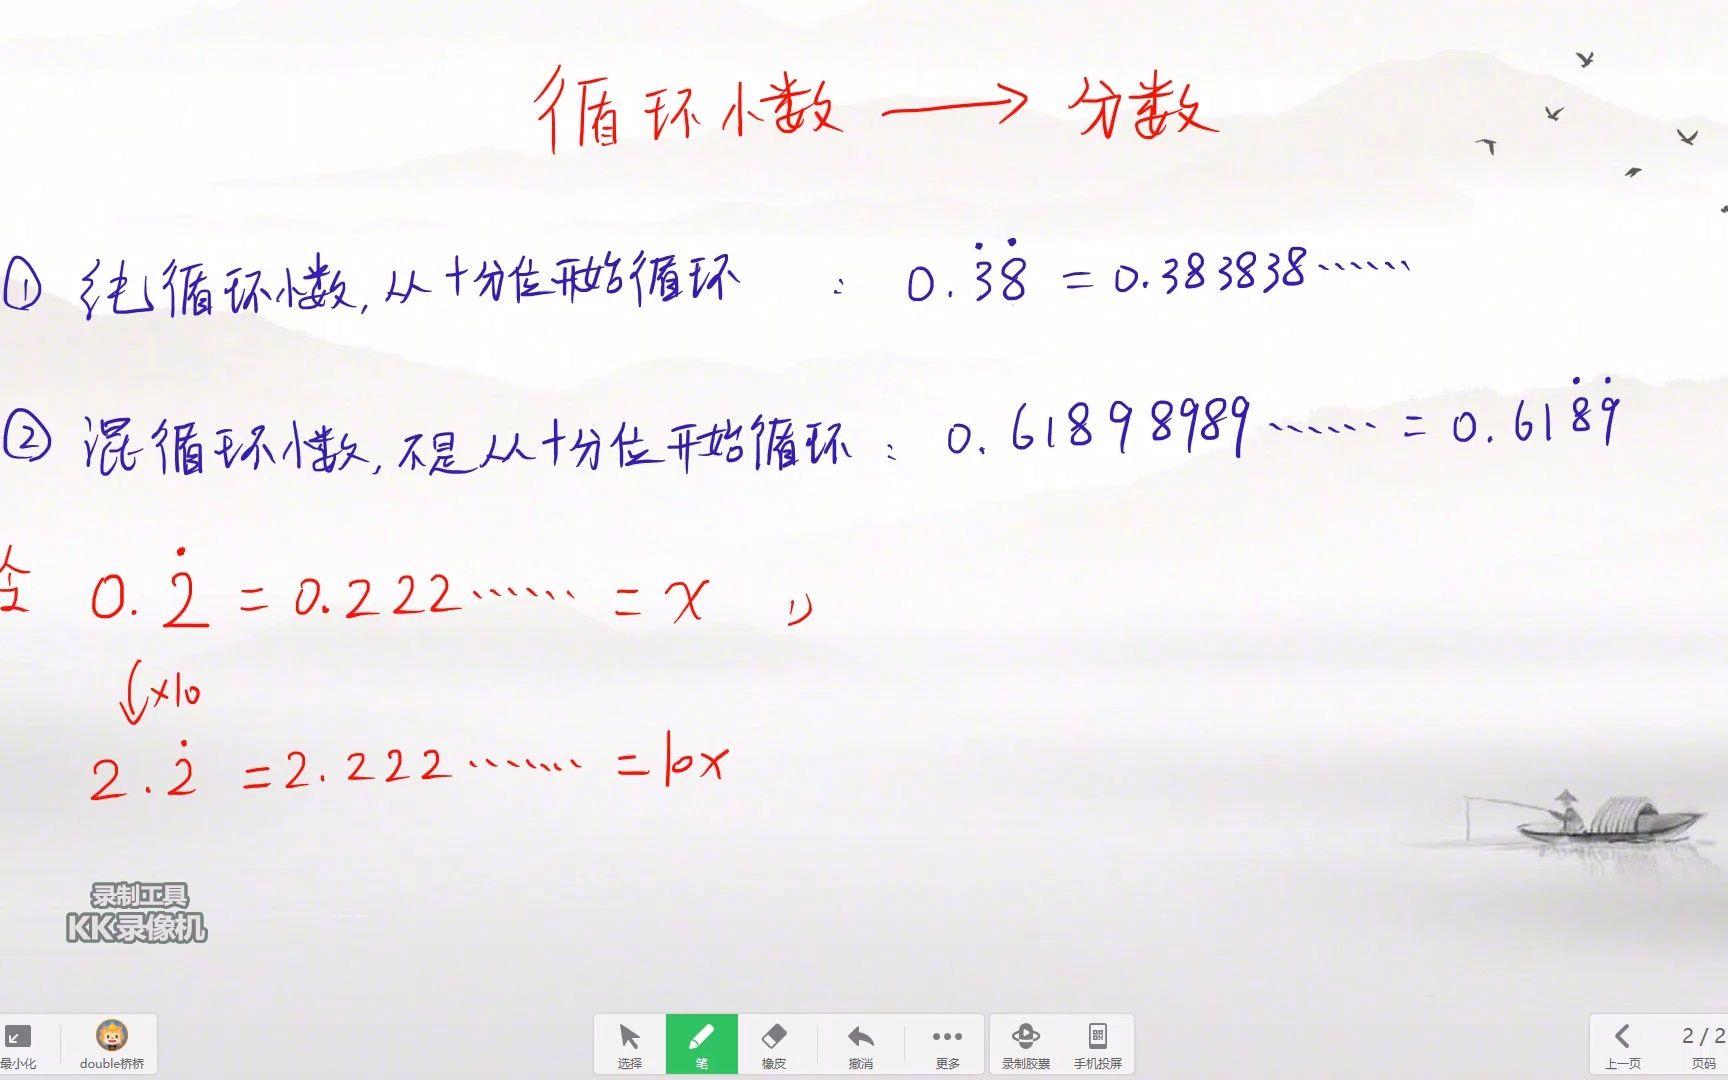 循环小数 → 分数
① 纯循环小数, 从十分位开始循环 : 0.3̇8̇ = 0.383838······
② 混循环小数, 不是从十分位开始循环 : 0.61898989······ = 0.618̇9̇
令 0.2̇ = 0.222······ = x 1)
×10
2.2̇ = 2.222······· = 10x
录制工具
KK录像机
最小化 double桥桥 选择 笔 橡皮 撤消 更多 录制胶囊 手机投屏 上一页 2/2 页码